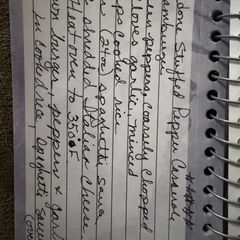 done Stuffed Pepper Casserole
hamburger
een peppers, coarsely chopped
loves garlic minced
ps cooked rice
(24oz) spaghetti sauce
shredded Italian cheese
Heat oven to 350°F
burger, peppers & garl
in cooked rice, spaghetti sauce
(over